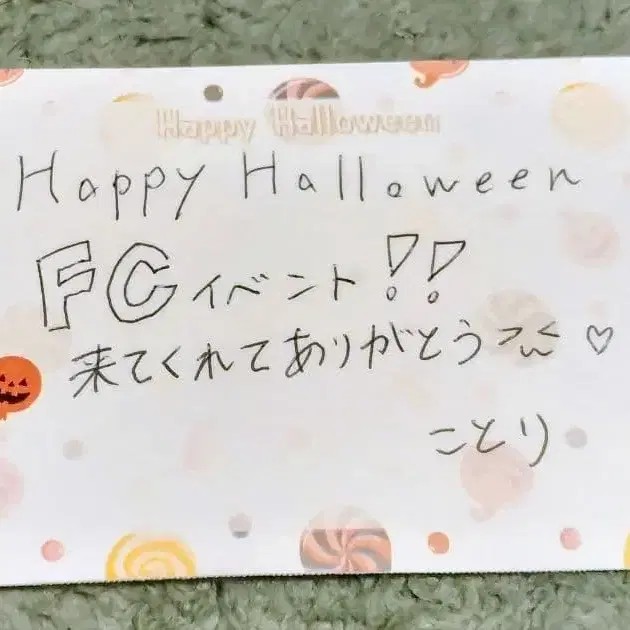 Happy Halloween
Happy Halloween
FCイベント!!
来てくれてありがとう >ω< ♡
ことり